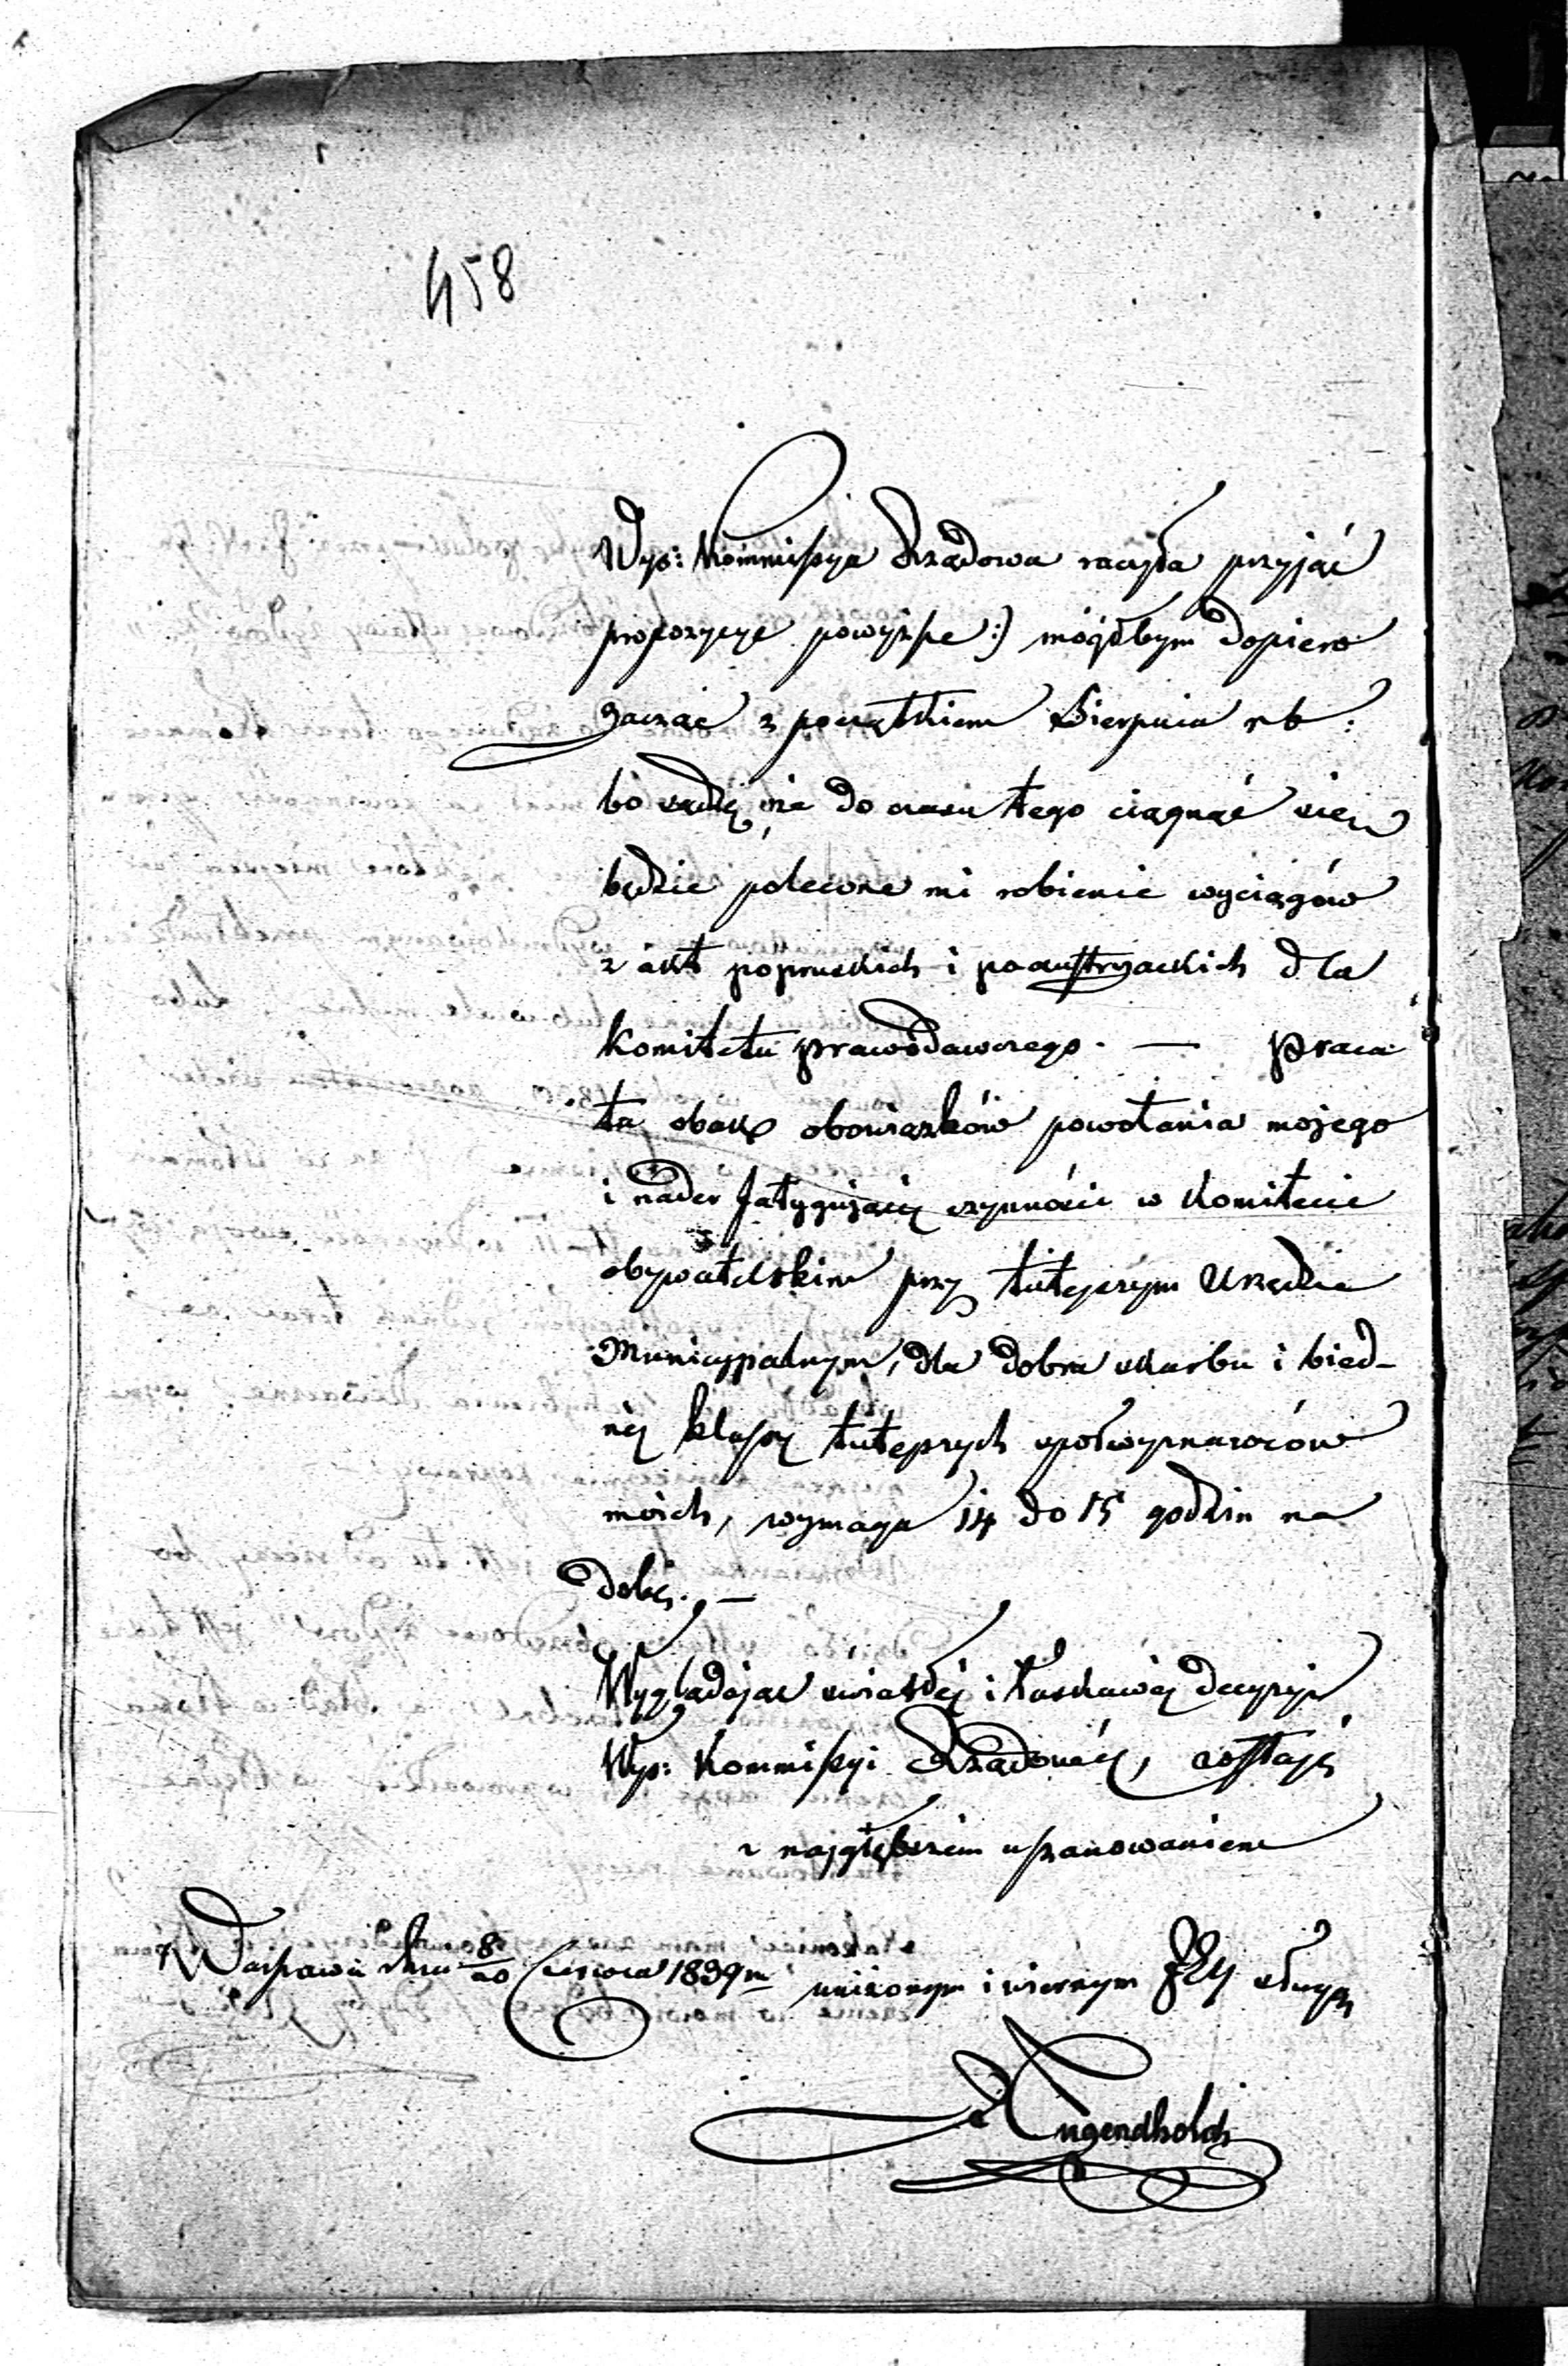 458
Wys: Kommissya Rządowa raczyła przyjąć
propozycye powyższe:) mógłbym dopiero
zacząć z początkiem Sierpnia rb:
bo sądzę że do czasu tego ciągnąć się
będzie polecone mi robienie wyciągów
z akt popruskich i poaustryackich dla
Komitetu prawodawczego. — Praca
ta obok obowiązków powołania mojego
i nader fatygującej czynności w Komitecie
obywatelskim przy tutejszym Urzędzie
Municypalnym, dla dobra skarbu i bied-
nej klassy tutejszych spółwyznawców
moich, wymaga 14 do 15 godzin na
dobę. —
Wyglądając światłej i łaskawej decyzyi
Wys: Kommissyi Rządowéj, zostaję
z najgłębszem uszanowaniem
Warszawa dnia 8/20 Czerwca 1839 r.
uniżonym i wiernym JEJ sługą
Tugendhold